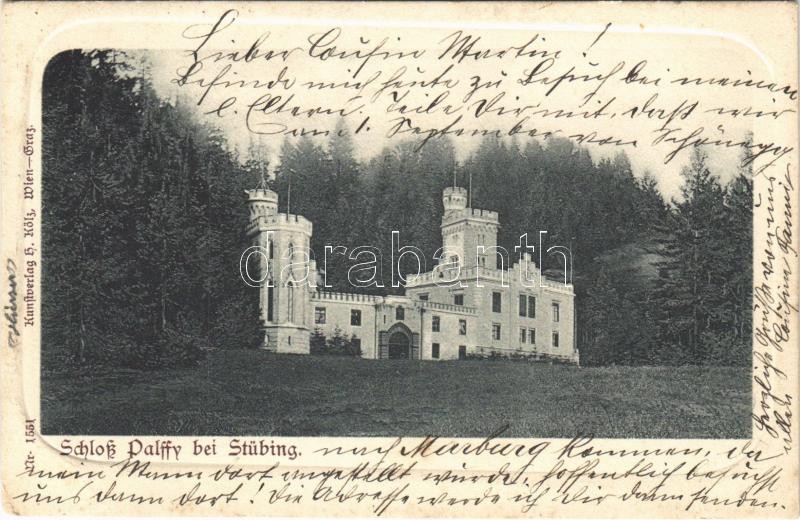 Lieber Cousin Martin!
Befinde mich heute zu Besuch bei meinen
l. Eltern. Teile Dir mit, daß wir
am 1. September von Schönegg
darabanth
Schloß Palffy bei Stübing.
nach Marburg kommen, da
mein Mann dort angestellt wurde, hoffentlich besuchst
uns dann dort! Die Adresse werde ich Dir dann senden.
Herzliche Grüße von uns
allen Cousine Fanni
Kunstverlag H. Kölz, Wien—Graz.
Nr. 1551